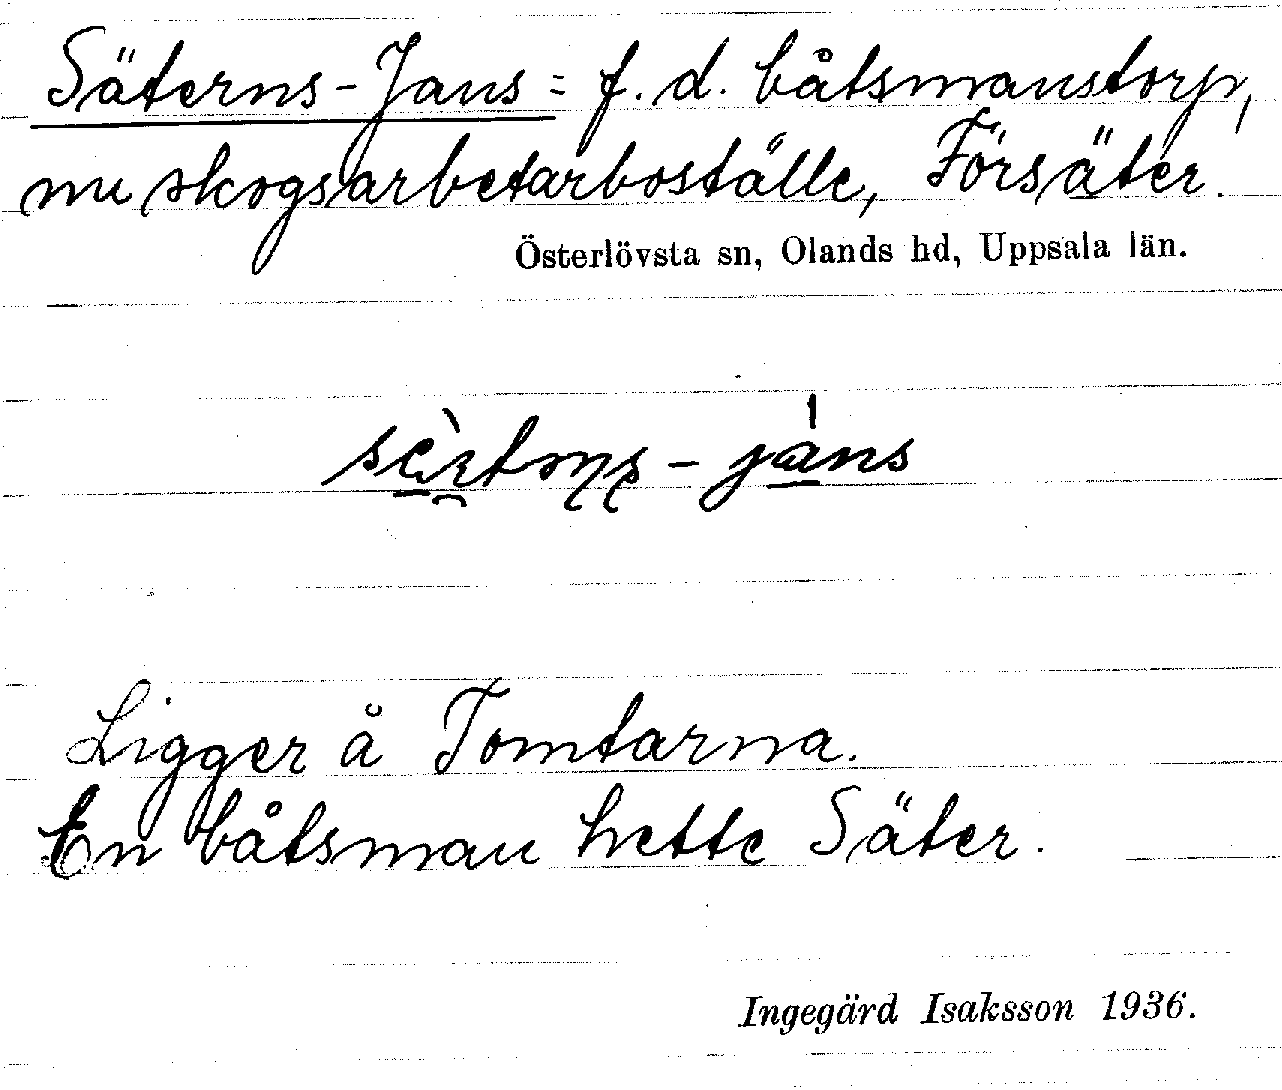 Säterns-Jans = f.d. båtsmanstorp,
nu skogsarbetarboställe, Försäter.
Österlövsta sn, Olands hd, Uppsala län.
Ligger å Tomtarna.
En båtsman hette Säter.
Ingegärd Isaksson 1936.